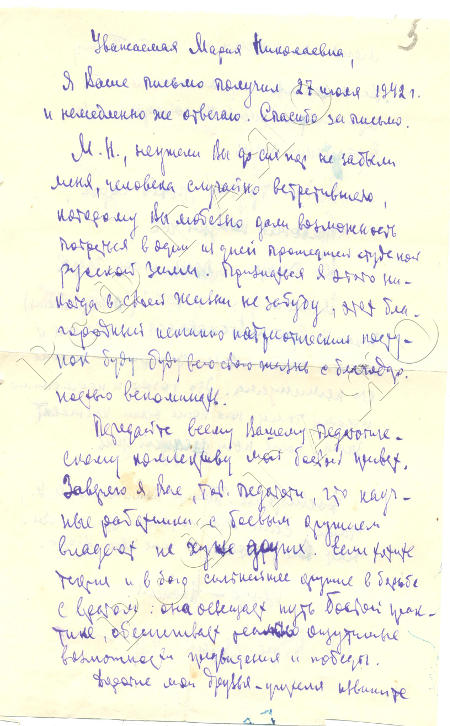 5
Уважаемая Мария Николаевна,
Я Ваше письмо получил 27 июля 1942 г.
и немедленно же отвечаю. Спасибо за письмо.
М.Н., неужели Вы до сих пор не забыли
меня, человека случайно встретившего,
которому Вы любезно дали возможность
погреться в один из дней прошедшей студеной
русской зимы. Признаться я этого ни-
когда в своей жизни не забуду, этот бла-
городный истинно патриотический посту-
пок буду буду всю свою жизнь с благодар-
ностью вспоминать.
Передайте всему Вашему педагогиче-
скому коллективу мой боевой привет.
Заверяю я Вас, тов. педагоги, что науч-
ные работники с боевым оружием
владеют не хуже других.
теория и в бою сильнейшее оружие в борьбе
с врагом: она освещает путь боевой прак-
тике, обеспечивает ощутимые
возможности предвидения и победы.
Дорогие мои друзья-учителя извините